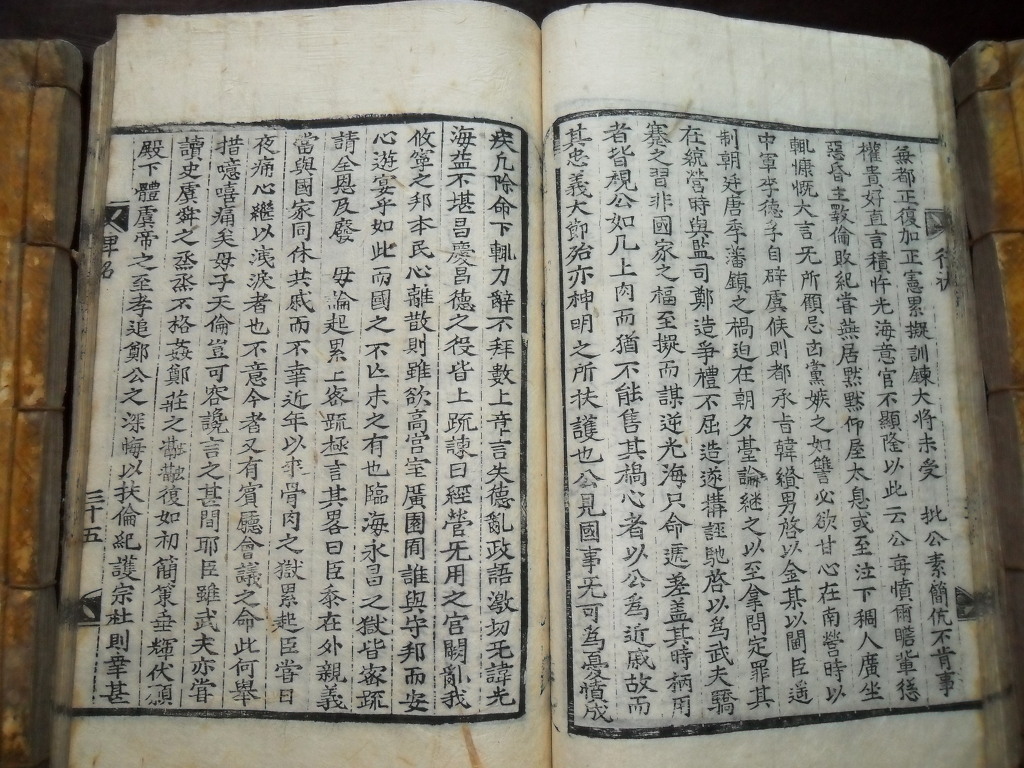 無都正復加正憲累擬訓鍊大將未受 批公素簡伉不肯事
權貴好直言積忤光海意官不顯隆以此云公每憤爾瞻輩慝
惡昏主斁倫敗紀嘗燕居默默仰屋太息或至注下稠人廣坐
輒慷慨大言无所顧忌凶黨嫉之如讐必欲甘心在南營時以
中軍李德孚自辟虞候則都承旨韓纘男啓以金某以閫臣遙
制朝廷唐李藩鎮之禍迫在朝夕臺論継之以至拿問定罪其
在統營時與監司鄭造爭禮不屈造遂搆誣馳啓以為武夫驕
蹇之習非國家之福至擬而謀逆光海只命遞差盖其時柄用
者皆視公如几上肉而猶不能售其禍心者以公為近戚故而
其忠義大節殆亦神明之所扶護也公見國事无可為憂憤成
疾凢除命下輒力辭不拜數上章言失德亂政語激切无諱光
海益不堪昌慶昌德之役皆上疏諫曰經營无用之宮闕亂我
攸寧之邦本民心離散則雖欲高宮室廣園囿誰與守邦而安
心遊宴乎如此而國之不亡未之有也臨海永昌之獄皆密疏
請全恩及廢 母論起累上密疏極言其畧曰臣忝在外親義
當與國家同休共戚而不幸近年以來骨肉之獄累起臣嘗日
夜痛心継以洩淚者也不意今者又有賓廳會議之命此何舉
措噫嘻痛矣母子天倫豈可容讒言之甚間耶臣雖武夫亦嘗
讀史虞舜之烝烝不格姦鄭莊之融融復如初簡策垂輝伏願
殿下體虞帝之至孝追鄭公之深悔以扶倫紀護宗社則幸甚
行狀
碑名
三十五